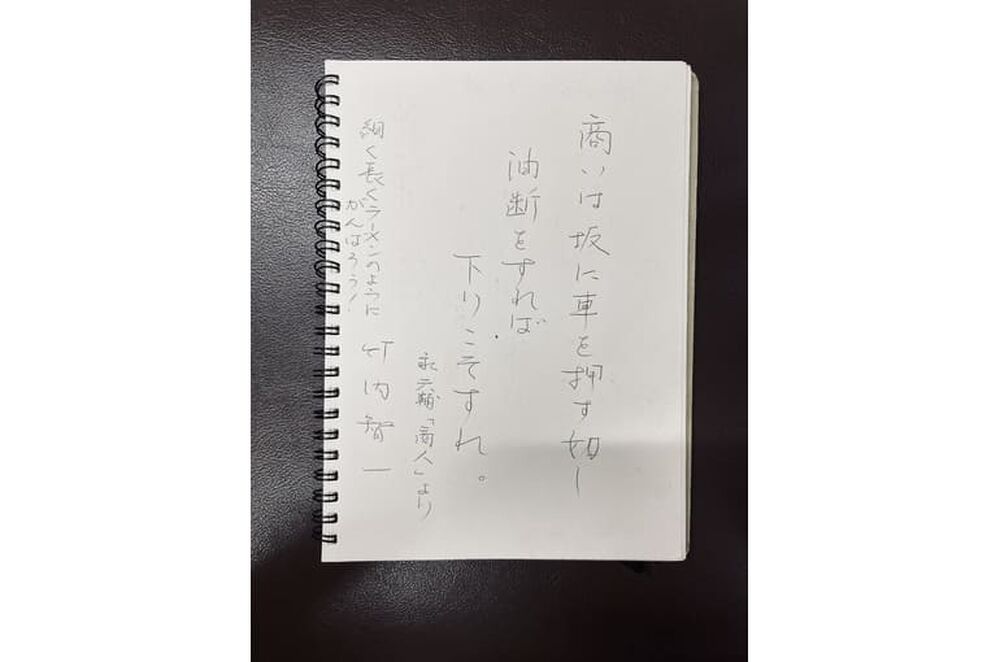 商いは坂に車を押す如し
油断をすれば
下りこそすれ。
永六輔「商人」より
細く長くラーメンのように
がんばろう!
竹内智一